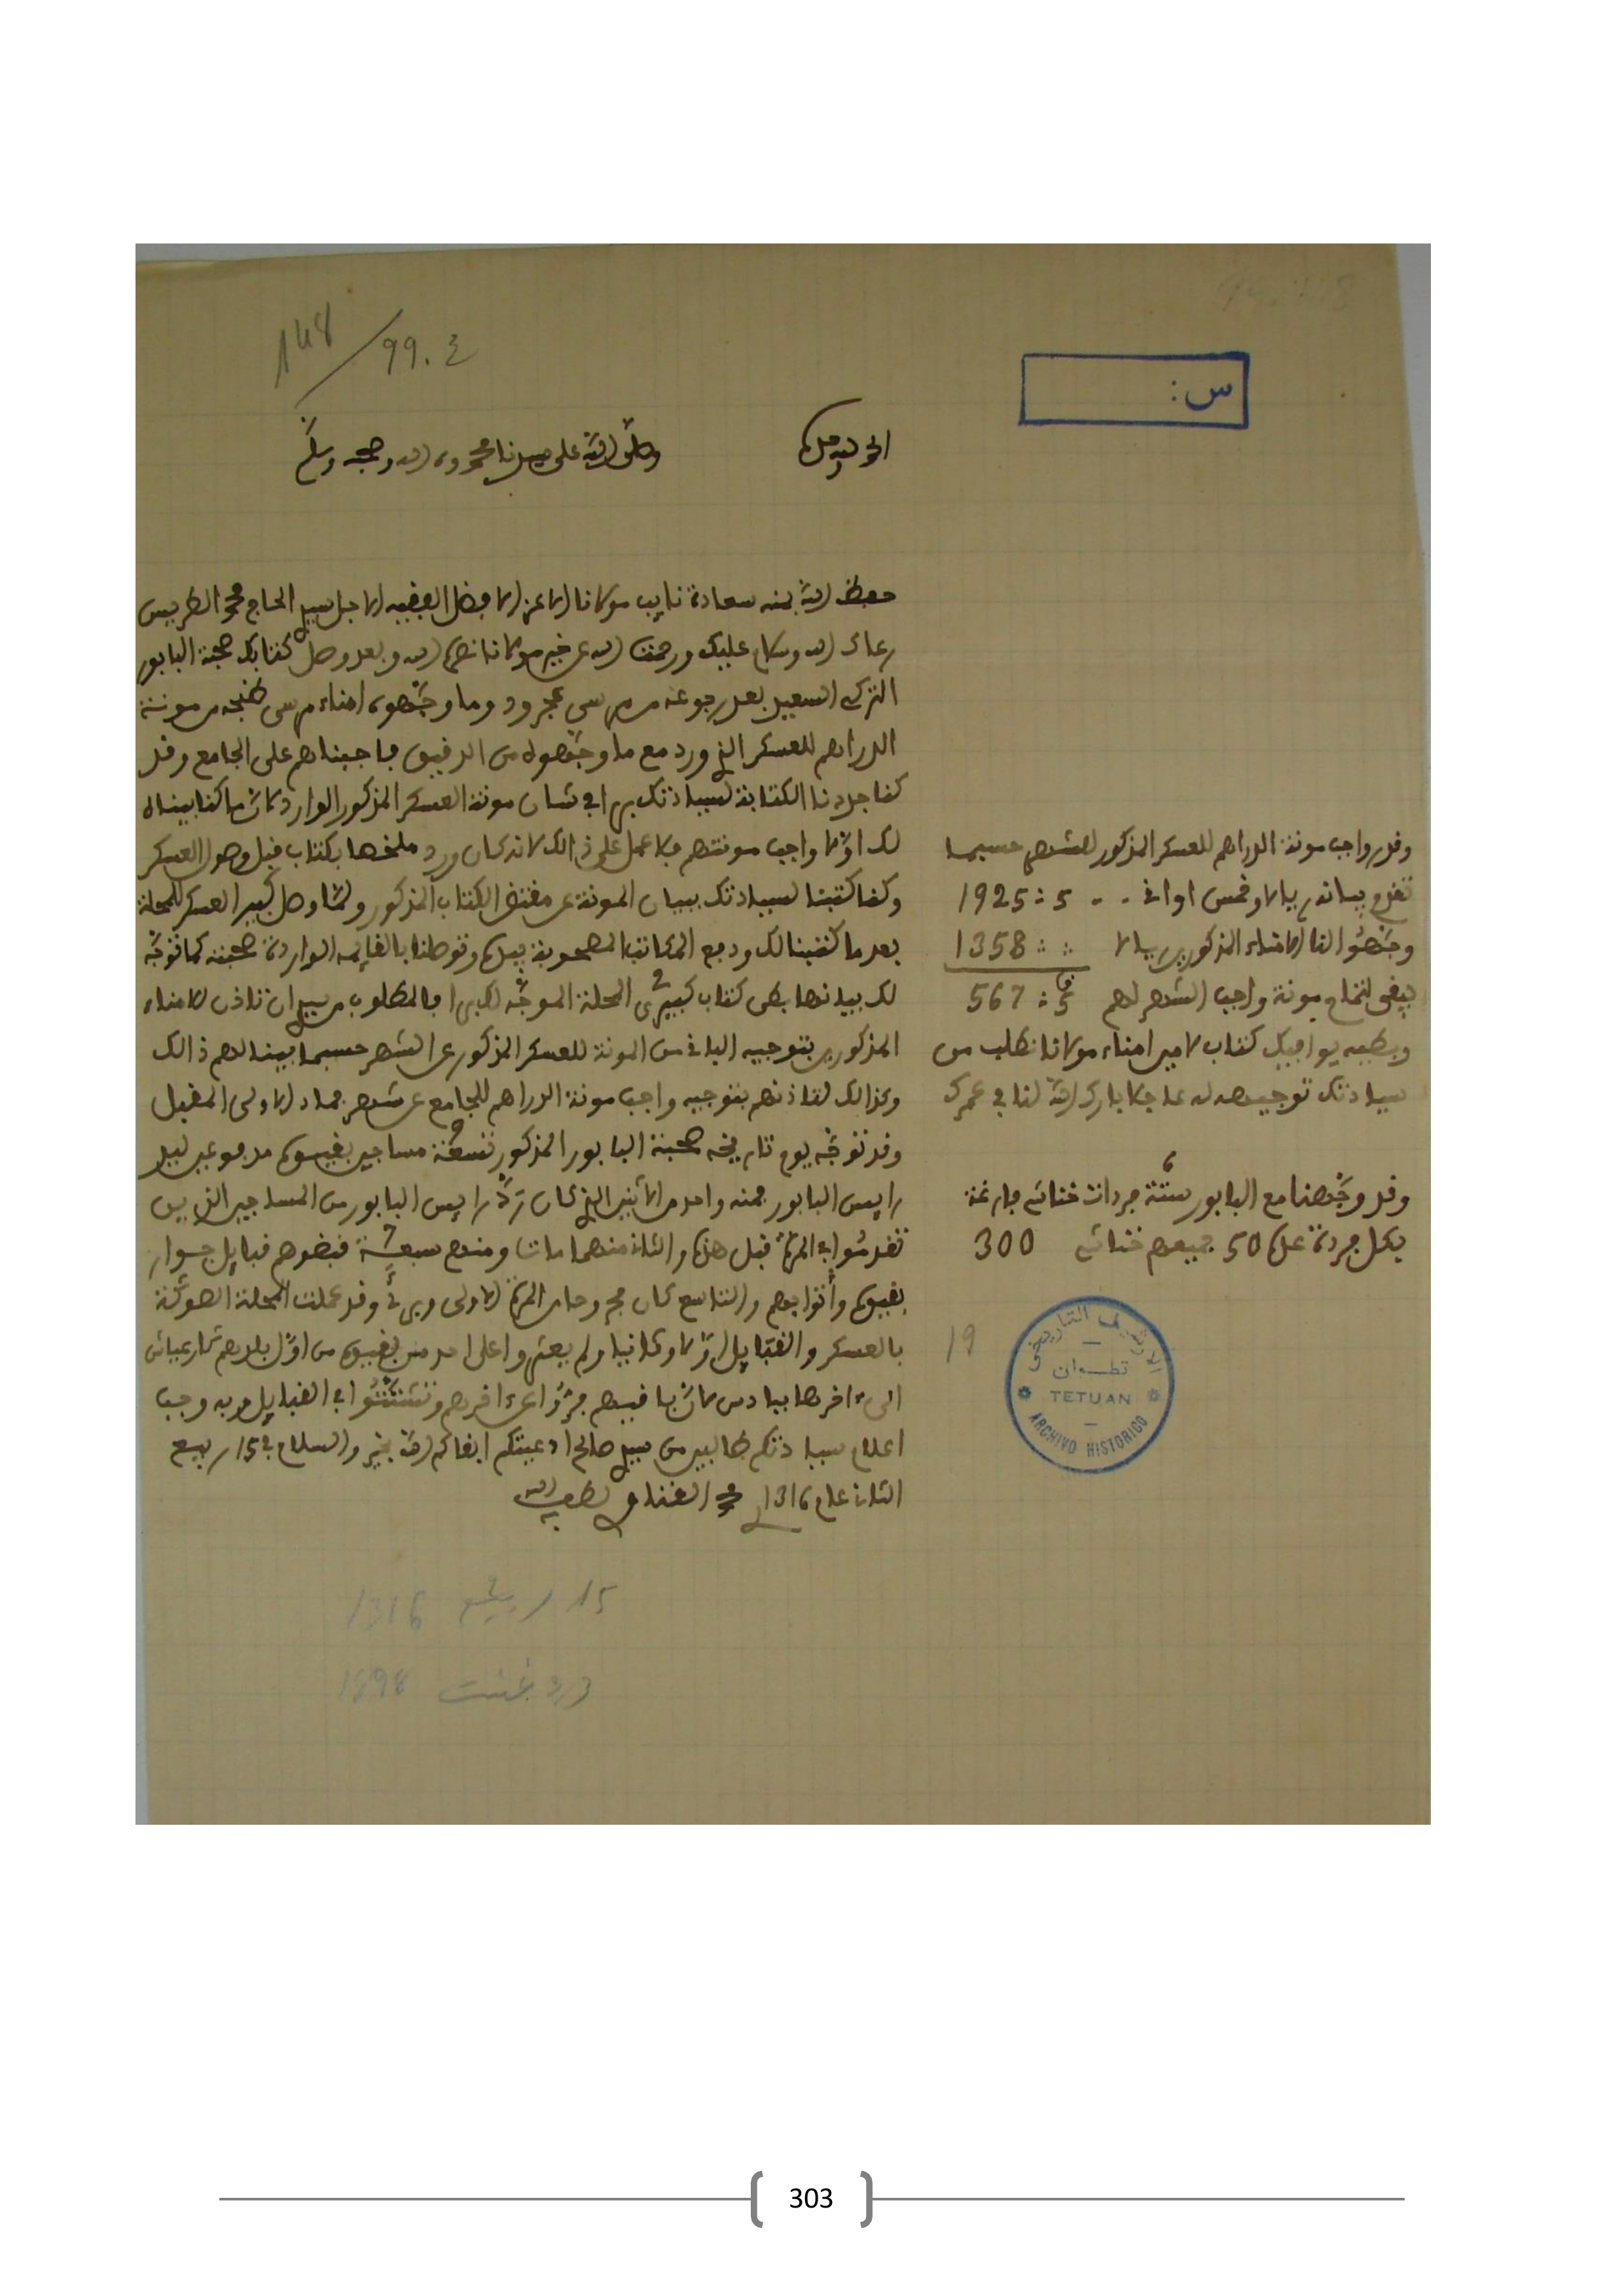 148/99.ع
س:
الحمد لله وحده
وصلى الله على سيدنا محمد وءاله وصحبه وسلم
حفظ الله بمنه سعادة نايب مولانا الاعز الافضل الفقيه الاجل سيدي الحاج محمد الطريس
رعاك الله وسلام عليك ورحمت الله عن خير مولانا نصره الله وبعد وصل كتابك صحبة البابور
التركي السعيد بعد رجوعه من مرسى عجرود وما وجهوه امناء مرسى طنجة من مونة
الدراهم للعسكر الذي ورد مع ما وجهوه من الدقيق فاجبناهم على الجامع وقد
كنا جددنا الكتابة لسيادتك بهذا في شان مونة العسكر المذكور الوارد لان ما كنا بيناه
لك اولا واجب مونتهم فلا عمل على ذالك لانه كان ورد ملخصها بكتاب قبل وصول العسكر
وكنا كتبنا لسيادتك ببيان المونة عن مقتضى الكتاب المذكور ولما وصل كبير العسكر للمحلة
بعد ما كتبنا لك ودفع المكاتب المصحوبة بيده وتوصلنا بالقايمة الواردة صحبته كما توجه
لك بيانها بطي كتاب كبيري المحلة الموجه لك بهذا فالمطلوب من سيدي ان تاذن لامناء
المذكورين بتوجيه الباقي من المونة للعسكر المذكور عن الشهر حسبما بينا لهم ذالك
وكذالك لتاذنهم بتوجيه واجب مونة الدراهم للجامع عن شهر جماد الاولى المقبل
وقد توجه يوم تاريخه صحبة البابور المذكور تسعة مساجين بقيوة مدفوعين ليد
رايس البابور فمنه واحد من الاثنين الذي كان رد رايس البابور من المساجين الذين
تقدموا في المرة قبل هذه والثاني منهما مات ومنهم سبعة قبضوهم قبايل جوار
بقيوة وأتوا بهم والتاسع كان مجروحا من المرة الاولى وبرئ وقد عملت المحلة الصوكة
بالعسكر والقبايل اولا وثانيا ولم يعثروا على احد من بقيوة من اول بلادهم
الى ءاخرها ببادس لان باقيهم فروا عن ءاخرهم وتشتتوا في القبايل وبه وجب
اعلام سيادتكم طالبين من سيدي صالح ادعيتكم ابقاكم الله بخير والسلام في 15 ربيع
الثاني عام 1316 لطف الله به
وقدر واجب مونة الدراهم للعسكر المذكور لشهر حسبما
تقدم بيانه ريالا وخمس اواقي . . 5 : 1925
وجهوا لنا الامناء المذكورين ريالا 1358
فيبقى لتمام مونة واجب الشهر لهم 5 : 567
وبطيه يوافيك كتاب لامين امناء مولانا نطلب من
سيادتك توجيهه له عاجلا بارك الله لنا في عمرك
وقد وجهنا مع البابور ستة فردات خناشي فارغة
بكل فردة على 50 جميعهم خناشي 300
19
الارشيف التاريخي
تطوان
TETUAN
ARCHIVO HISTORICO
15 ربيع 2 1316
غشت 1898
303